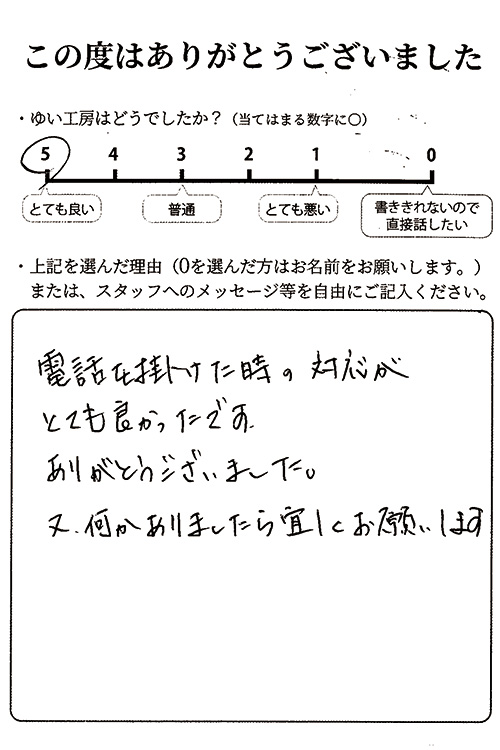 この度はありがとうございました
・ゆい工房はどうでしたか？（当てはまる数字に○）
5 4 3 2 1 0
とても良い 普通 とても悪い 書ききれないので
直接話したい
・上記を選んだ理由（0を選んだ方はお名前をお願いします。）
または、スタッフへのメッセージ等を自由にご記入ください。
電話を掛けた時の対応が
とても良かったです.
ありがとうございました。
又、何かありましたら宜しくお願いします